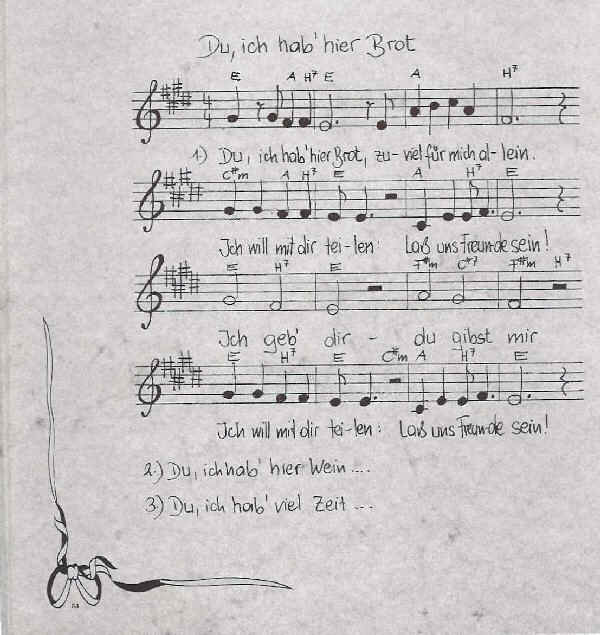 Du, ich hab' hier Brot
E A H7 E A H7
4
4
1.) Du, ich hab' hier Brot, zu-viel für mich al-lein.
C#m A H7 E A H7 E
Ich will mit dir tei-len: Laß uns Freunde sein!
E H7 E F#m C#7 F#m H7
Ich geb' dir - du gibst mir
E H7 E C#m A H7 E
Ich will mit dir tei-len: Laß uns Freun-de sein!
2.) Du, ich hab' hier Wein ....
3.) Du, ich hab' viel Zeit ...